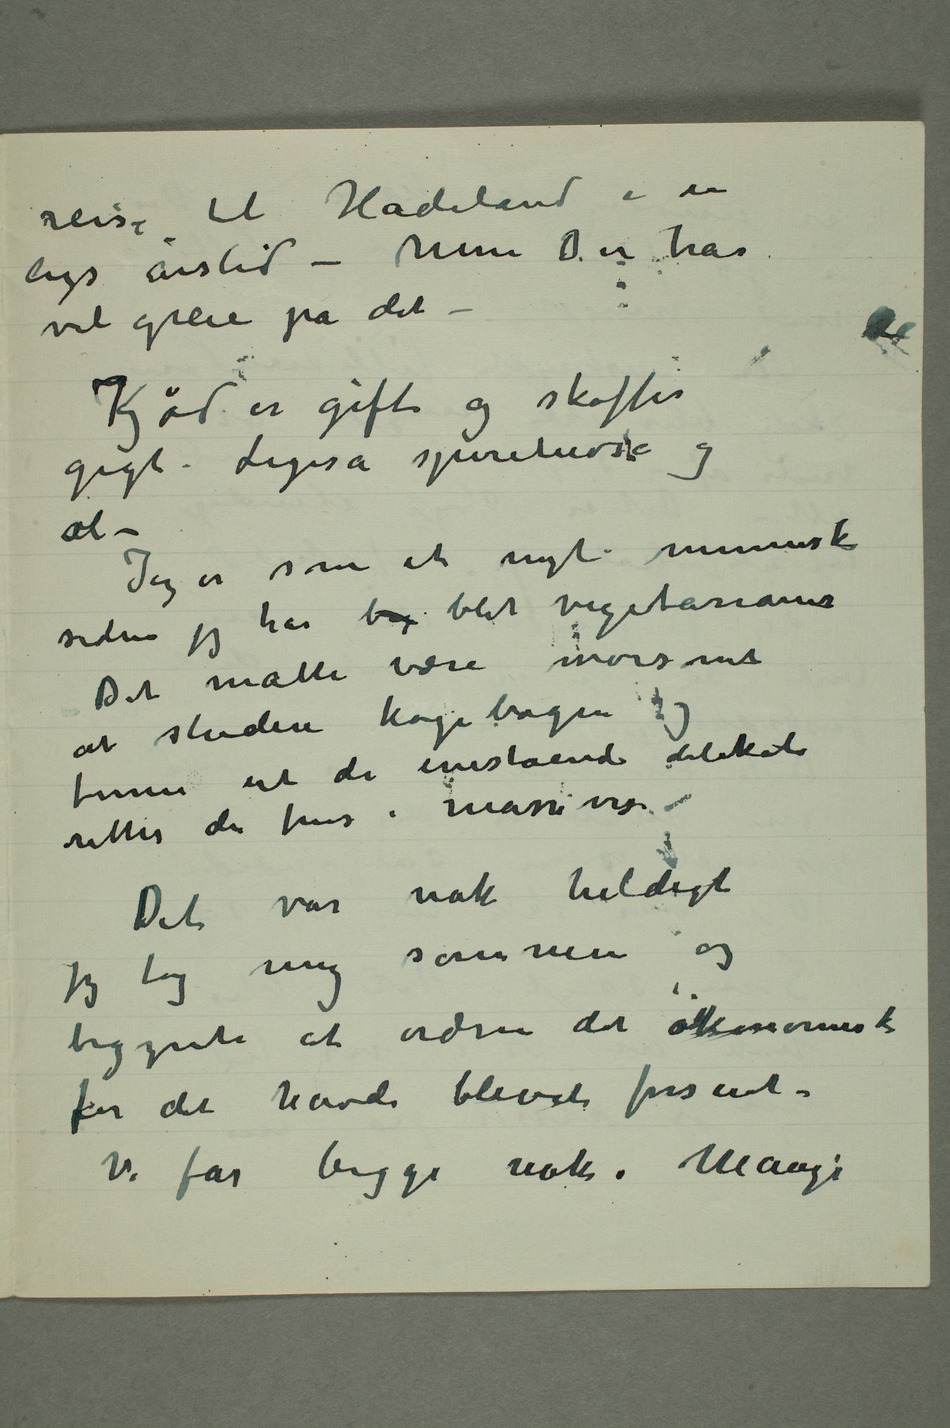 reise til Hadeland i en
lys årstid – Men Der har
vel greie på det –
Kjød er gift og skaffer
gigt. Ligeså spirituosa og
øl –
Jeg er som et nyt mennesk
siden jeg har blit vegetarianer
Det måtte være morsomt
at studere kogebogen og
finne ut de enestående delikate
retter der fins i massevis –
Det var nok heldigt
jeg tog mig sammen og
begynte at ordne det økonomisk
før det havde blevet forsent –
Vi får begge nok. Mange